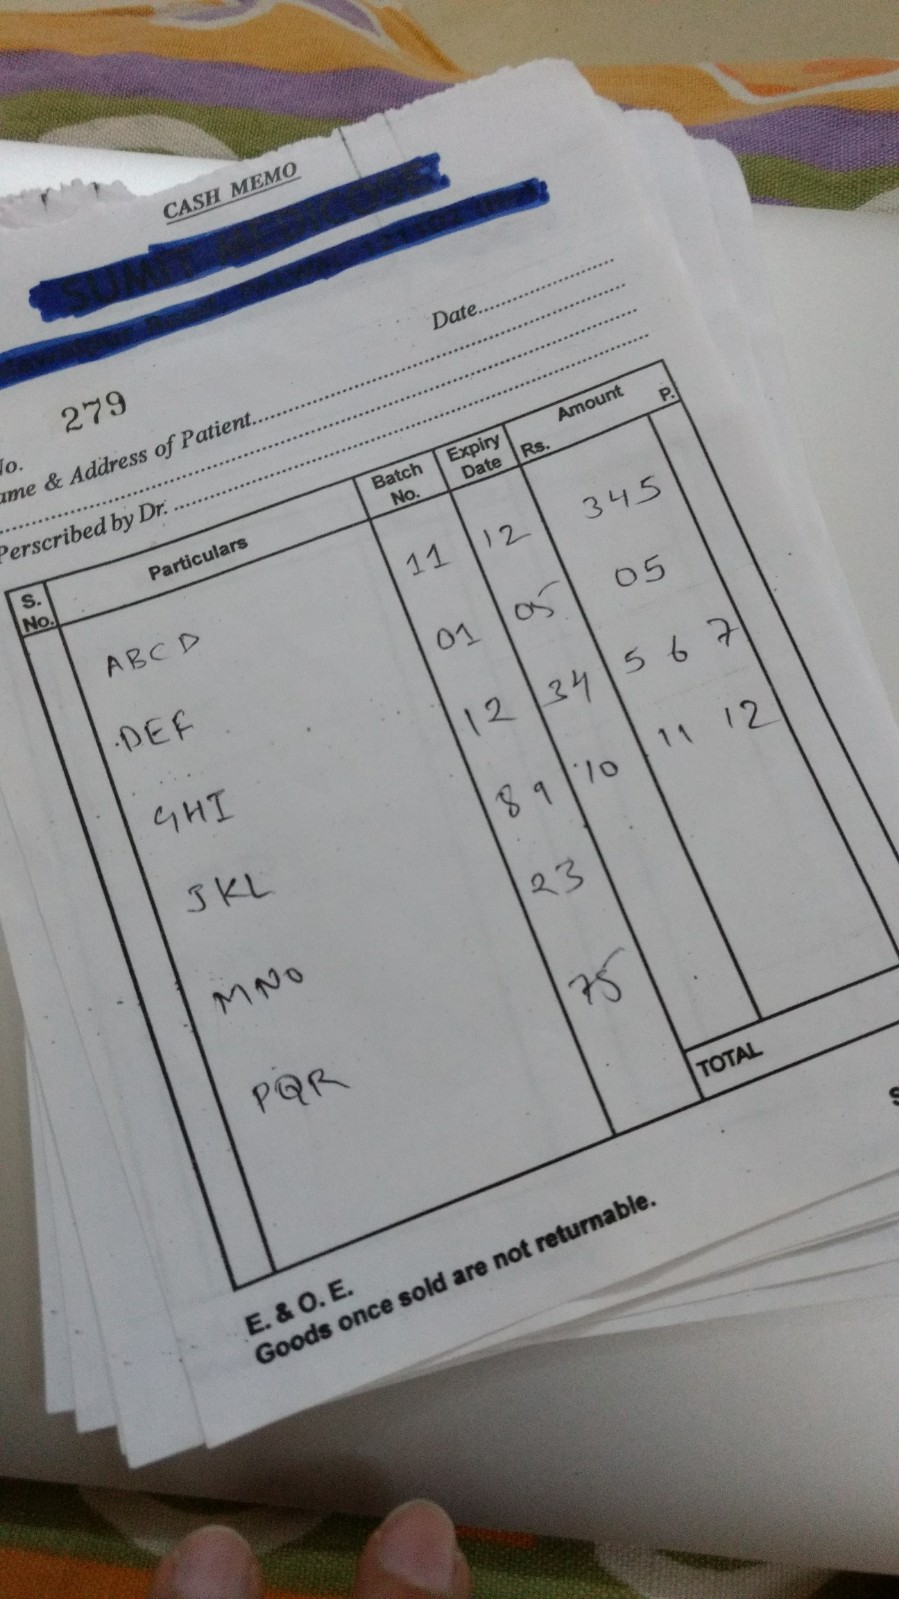 CASH MEMO
SUMIT MEDICOSE
279
Date
No.
ame & Address of Patient
Perscribed by Dr.
S. No. Particulars Batch No. Expiry Date Amount Rs. P.
ABCD 11 12 345
DEF 01 05 05
GHI 12 34 5 6 7
JKL 89 10 11 12
MNO 23
PQR 75
TOTAL
E. & O. E.
Goods once sold are not returnable.